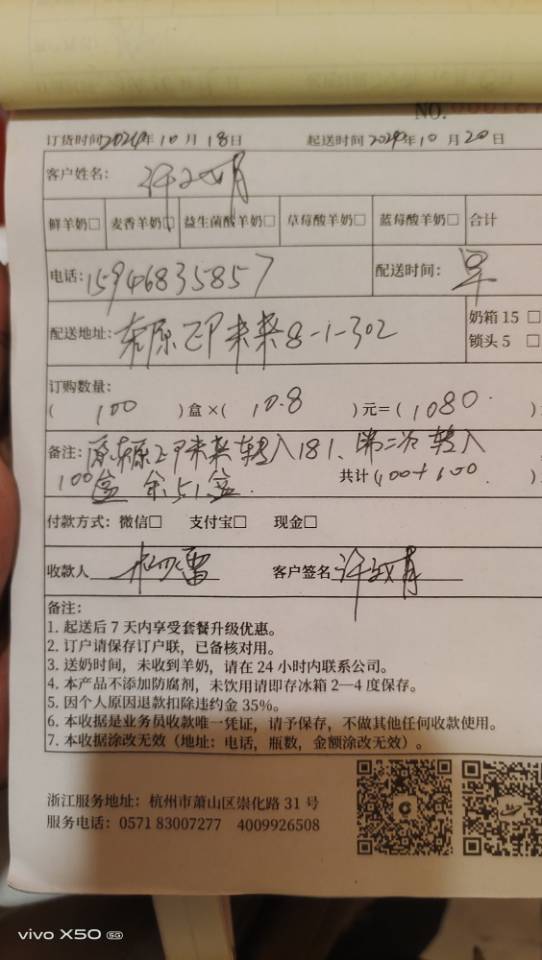 NO.
订货时间2024年10月18日 起送时间2024年10月20日
客户姓名:
鲜羊奶□ 麦香羊奶□ 益生菌酸羊奶□ 草莓酸羊奶□ 蓝莓酸羊奶□ 合计
电话:15946835857 配送时间:早
配送地址:东原正甲未来8-1-302
奶箱15□
锁头5□
订购数量:
(100)盒×(10.8)元=(1080.)
备注:原东原正甲未来转入181、第二次转入
100盒 余51盒. 共计(100+100.)
付款方式:微信□ 支付宝□ 现金□
收款人 客户签名
备注:
1. 起送后7天内享受套餐升级优惠。
2. 订户请保存订户联,已备核对用。
3. 送奶时间,未收到羊奶,请在24小时内联系公司。
4. 本产品不添加防腐剂,未饮用请即存冰箱2—4度保存。
5. 因个人原因退款扣除违约金35%。
6. 本收据是业务员收款唯一凭证,请予保存,不做其他任何收款使用。
7. 本收据涂改无效(地址:电话,瓶数,金额涂改无效)。
浙江服务地址:杭州市萧山区崇化路31号
服务电话:0571 83007277 4009926508
vivo X50 5G